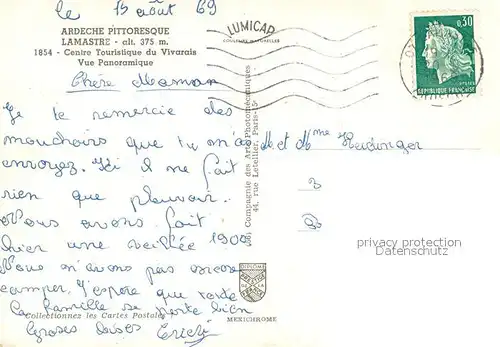 le 15 août 69
ARDECHE PITTORESQUE
LAMASTRE - alt. 375 m.
1854 - Centre Touristique du Vivarais
Vue Panoramique
Chère Maman
Je te remercie des
mouchoirs que tu m'as
envoyez. Ici il ne fait
rien que pleuvoir.
Nous avons fait
hier une veillée 1900
Nous n'avons pas encore
camper. J'espère que toute
la famille se porte bien
Collectionnez les Cartes Postales
Grosses bises
LUMICAP
COULEURS NATURELLES
Compagnie des Arts Photomécaniques
44, rue Letellier, Paris-15e
DIPLOME
PRESTIGE
FRANCE
MEXICHROME
0,30
REPUBLIQUE FRANÇAISE
M et Mme
privacy protection
Datenschutz